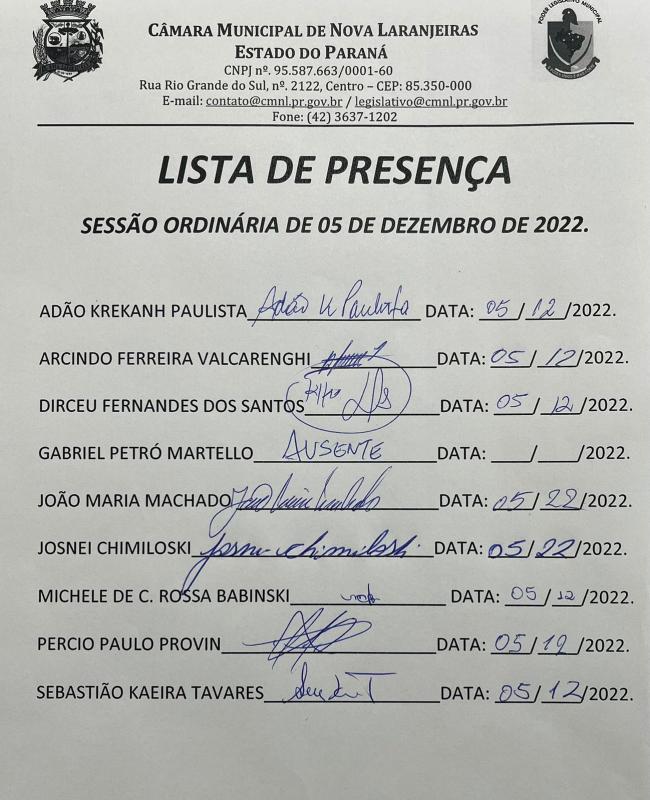 CÂMARA MUNICIPAL DE NOVA LARANJEIRAS
ESTADO DO PARANÁ
CNPJ nº. 95.587.663/0001-60
Rua Rio Grande do Sul, nº. 2122, Centro – CEP: 85.350-000
E-mail: contato@cmnl.pr.gov.br / legislativo@cmnl.pr.gov.br
Fone: (42) 3637-1202
PODER LEGISLATIVO MUNICIPAL
LISTA DE PRESENÇA
SESSÃO ORDINÁRIA DE 05 DE DEZEMBRO DE 2022.
ADÃO KREKANH PAULISTA Adão K Paulista DATA: 05/12/2022.
ARCINDO FERREIRA VALCARENGHI DATA: 05/12/2022.
DIRCEU FERNANDES DOS SANTOS DATA: 05/12/2022.
GABRIEL PETRÓ MARTELLO AUSENTE DATA: ___/___/2022.
JOÃO MARIA MACHADO DATA: 05/22/2022.
JOSNEI CHIMILOSKI Josnei chimiloski DATA: 05/22/2022.
MICHELE DE C. ROSSA BABINSKI DATA: 05/12/2022.
PERCIO PAULO PROVIN DATA: 05/12/2022.
SEBASTIÃO KAEIRA TAVARES DATA: 05/12/2022.